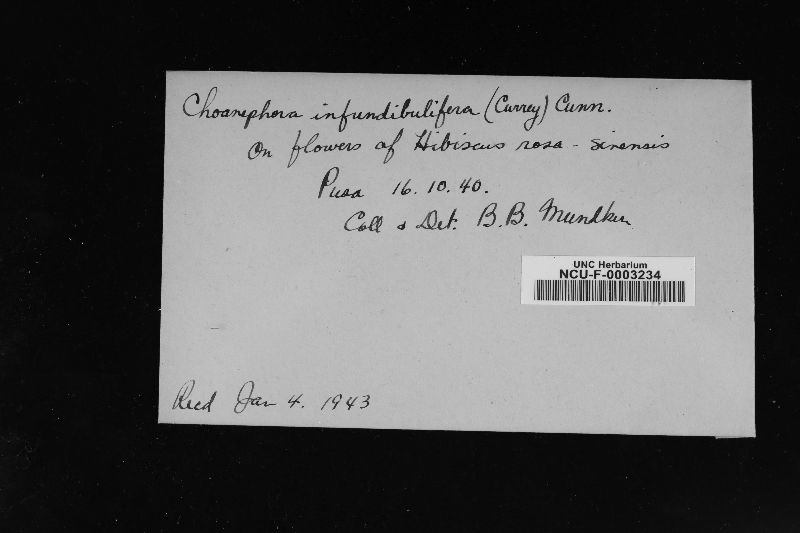 Choanephora infundibulifera (Currey) Cunn.
On flowers of Hibiscus rosa-sinensis
Pusa 16.10.40.
Coll & Det. B.B. Mundkur
UNC Herbarium
NCU-F-0003234
Recd Jan 4. 1943